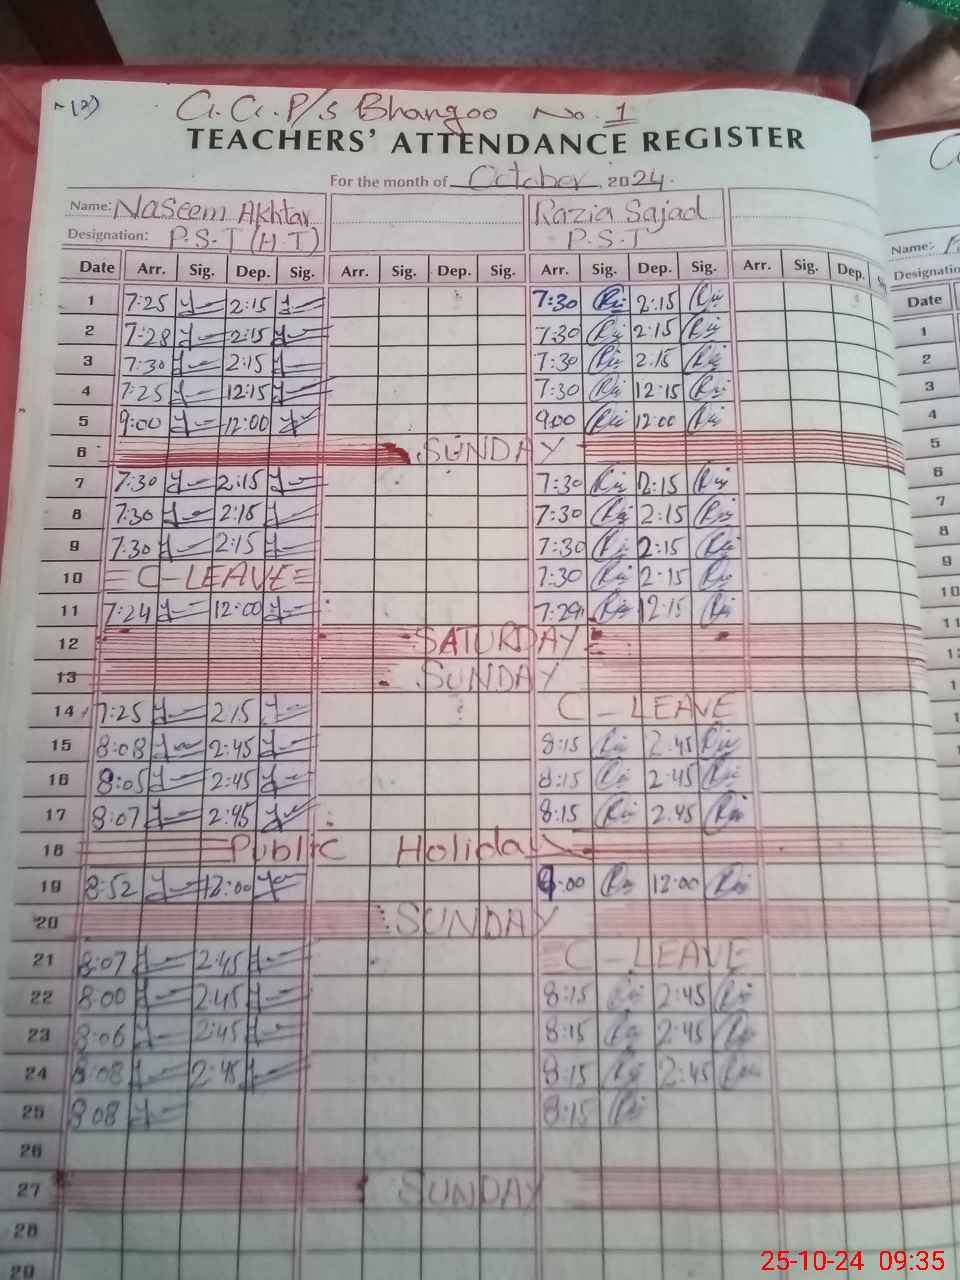 G.G.P/s Bhangoo No. 1
TEACHERS' ATTENDANCE REGISTER
For the month of October, 2024.
Name: Naseem Akhtar Razia Sajad
Designation: P.S.T (H.T) P.S.T
Date Arr. Sig. Dep. Sig. Arr. Sig. Dep. Sig. Arr. Sig. Dep. Sig. Arr. Sig. Dep. Sig.
1 7:25 2:15 7:30 2:15
2 7:28 2:15 7:30 2:15
3 7:30 2:15 7:30 2:15
4 7:25 12:15 7:30 12:15
5 9:00 12:00 9:00 12:00
6 SUNDAY
7 7:30 2:15 7:30 2:15
8 7:30 2:15 7:30 2:15
9 7:30 2:15 7:30 2:15
10 C-LEAVE 7:30 2:15
11 7:24 12:00 7:29 12:15
12 SATURDAY
13 SUNDAY
14 7:25 2:15 C-LEAVE
15 8:08 2:45 8:15 2:45
16 8:05 2:45 8:15 2:45
17 8:07 2:45 8:15 2.45
18 Public Holiday
19 8:52 12:00 9:00 12:00
20 SUNDAY
21 8:07 2:45 C-LEAVE
22 8:00 2:45 8:15 2:45
23 8:06 2:45 8:15 2:45
24 8:08 2:45 8:15 2:45
25 8:08 8:15
26
27 SUNDAY
28
29
Name:
Date
1
2
3
4
5
6
7
8
9
10
11
25-10-24 09:35